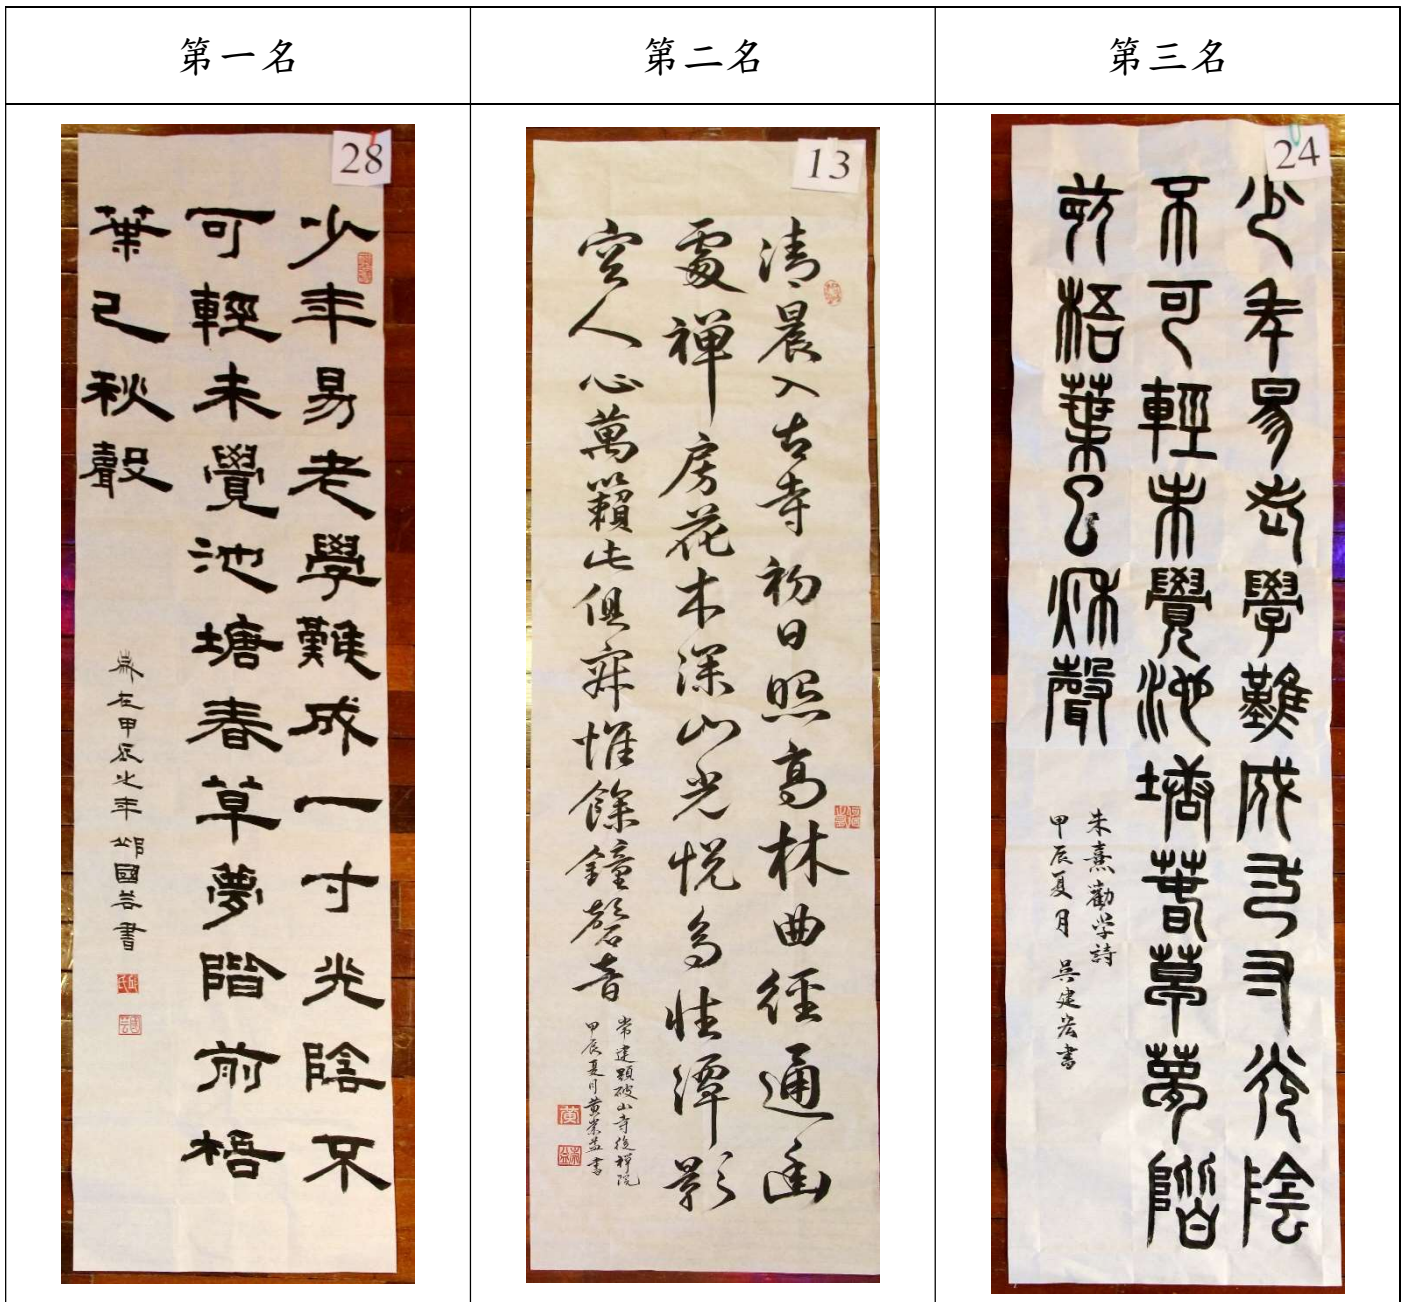 第一名
第二名
第三名
28
少年易老學難成一寸光陰不
可輕未覺池塘春草夢階前梧
葉已秋聲
歲在甲辰之年 邱國書
13
清晨入古寺初日照高林曲徑通幽
處禪房花木深山光悅鳥性潭影
空人心萬籟此俱寂惟餘鐘磬音
常建題破山寺後禪院
甲辰夏月黃書
24
少年易老學難成一寸光陰
不可輕未覺池塘春草夢階
前梧葉已秋聲
朱熹勸学詩
甲辰夏月 吳建宏書